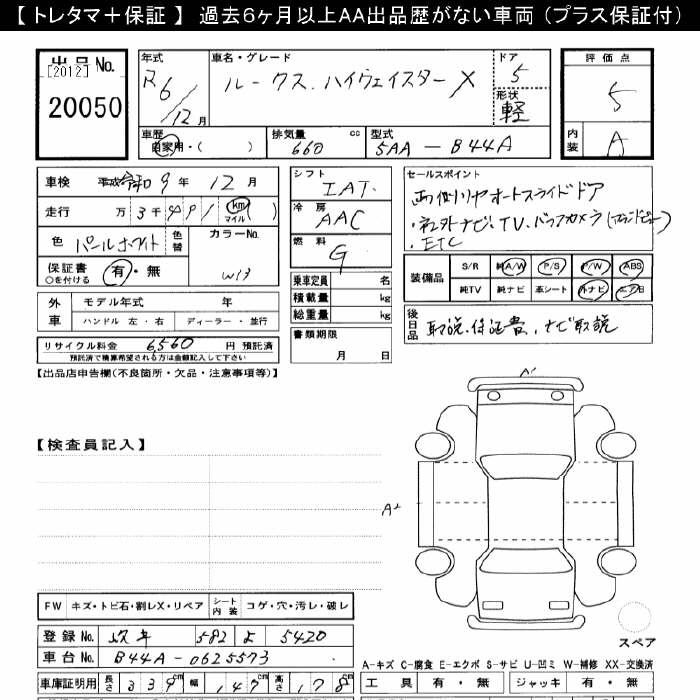 【 トレタマ＋保証 】 過去6ヶ月以上AA出品歴がない車両 (プラス保証付)
出品 No.
[2012]
20050
年式
R6/12月
車名・グレード
ルークス ハイウェイスター X
ドア
5
形状
軽
評価点
5
内装
A
車歴
自家用・( )
排気量 cc
660
型式
5AA - B44A
車検 平成 令和 9年 12月
走行 万 3千491 (km マイル)
色 パールホワイト 色替
カラーNo.
W13
保証書 有・無
○を付ける
外車 モデル年式 年
ハンドル 左・右 ディーラー・並行
リサイクル料金 6560 円 預託済
預託済で積算希望される方は金額記入して下さい
シフト
IAT
冷房
AAC
燃料
G
乗車定員 名
積載量 kg
総重量 kg
書類期限
月 日
セールスポイント
両側パワーオートスライドドア
・社外ナビ、TV、バックカメラ
・ETC
装備品 S/R 純A/W P/S P/W ABS
純TV 純ナビ 革シート 外ナビ エアB
後日品 取説、保証書、ナビ取説
【出品店申告欄(不良箇所・欠品・注意事項等)】
【検査員記入】
A1
A2
スペア
FW キズ・トビ石・割レX・リペア シート内装 コゲ・穴・汚レ・破レ
登録 No. 582 5420
車台 No. B44A-0625573
車庫証明用 長さ 339cm 幅 147cm 高さ 178cm
A-キズ C-腐食 E-エクボ S-サビ U-凹ミ W-補修 XX-交換済
工具 有・無 ジャッキ 有・無